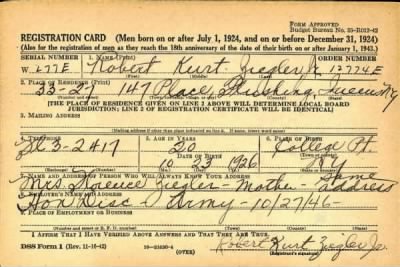 FORM APPROVED
Budget Bureau No. 33-R012-42
REGISTRATION CARD (Men born on or after July 1, 1924, and on or before December 31, 1924)
(Also for the registration of men as they reach the 18th anniversary of the date of their birth on or after January 1, 1943.)
SERIAL NUMBER 1. NAME (Print) ORDER NUMBER
W 677E Robert Kurt Ziegler Jr. 12774E
2. PLACE OF RESIDENCE (Print)
33-27 147 Place Flushing Queens N.Y.
[THE PLACE OF RESIDENCE GIVEN ON LINE 2 ABOVE WILL DETERMINE LOCAL BOARD
JURISDICTION; LINE 2 OF REGISTRATION CERTIFICATE WILL BE IDENTICAL]
3. MAILING ADDRESS
4. TELEPHONE 5. AGE IN YEARS 6. PLACE OF BIRTH
3-2417 20 College Pt.
DATE OF BIRTH
10 23 1926 N.Y.
7. NAME AND ADDRESS OF PERSON WHO WILL ALWAYS KNOW YOUR ADDRESS
Mrs Florence Ziegler - Mother - Same address
8. EMPLOYER'S NAME AND ADDRESS
Hon Disc Army - 10/27/46 -
9. PLACE OF EMPLOYMENT OR BUSINESS
I AFFIRM THAT I HAVE VERIFIED ABOVE ANSWERS AND THAT THEY ARE TRUE.
DSS Form 1 (Rev. 11-16-42) (OVER) Robert Kurt Ziegler Jr.
(Registrant's signature)